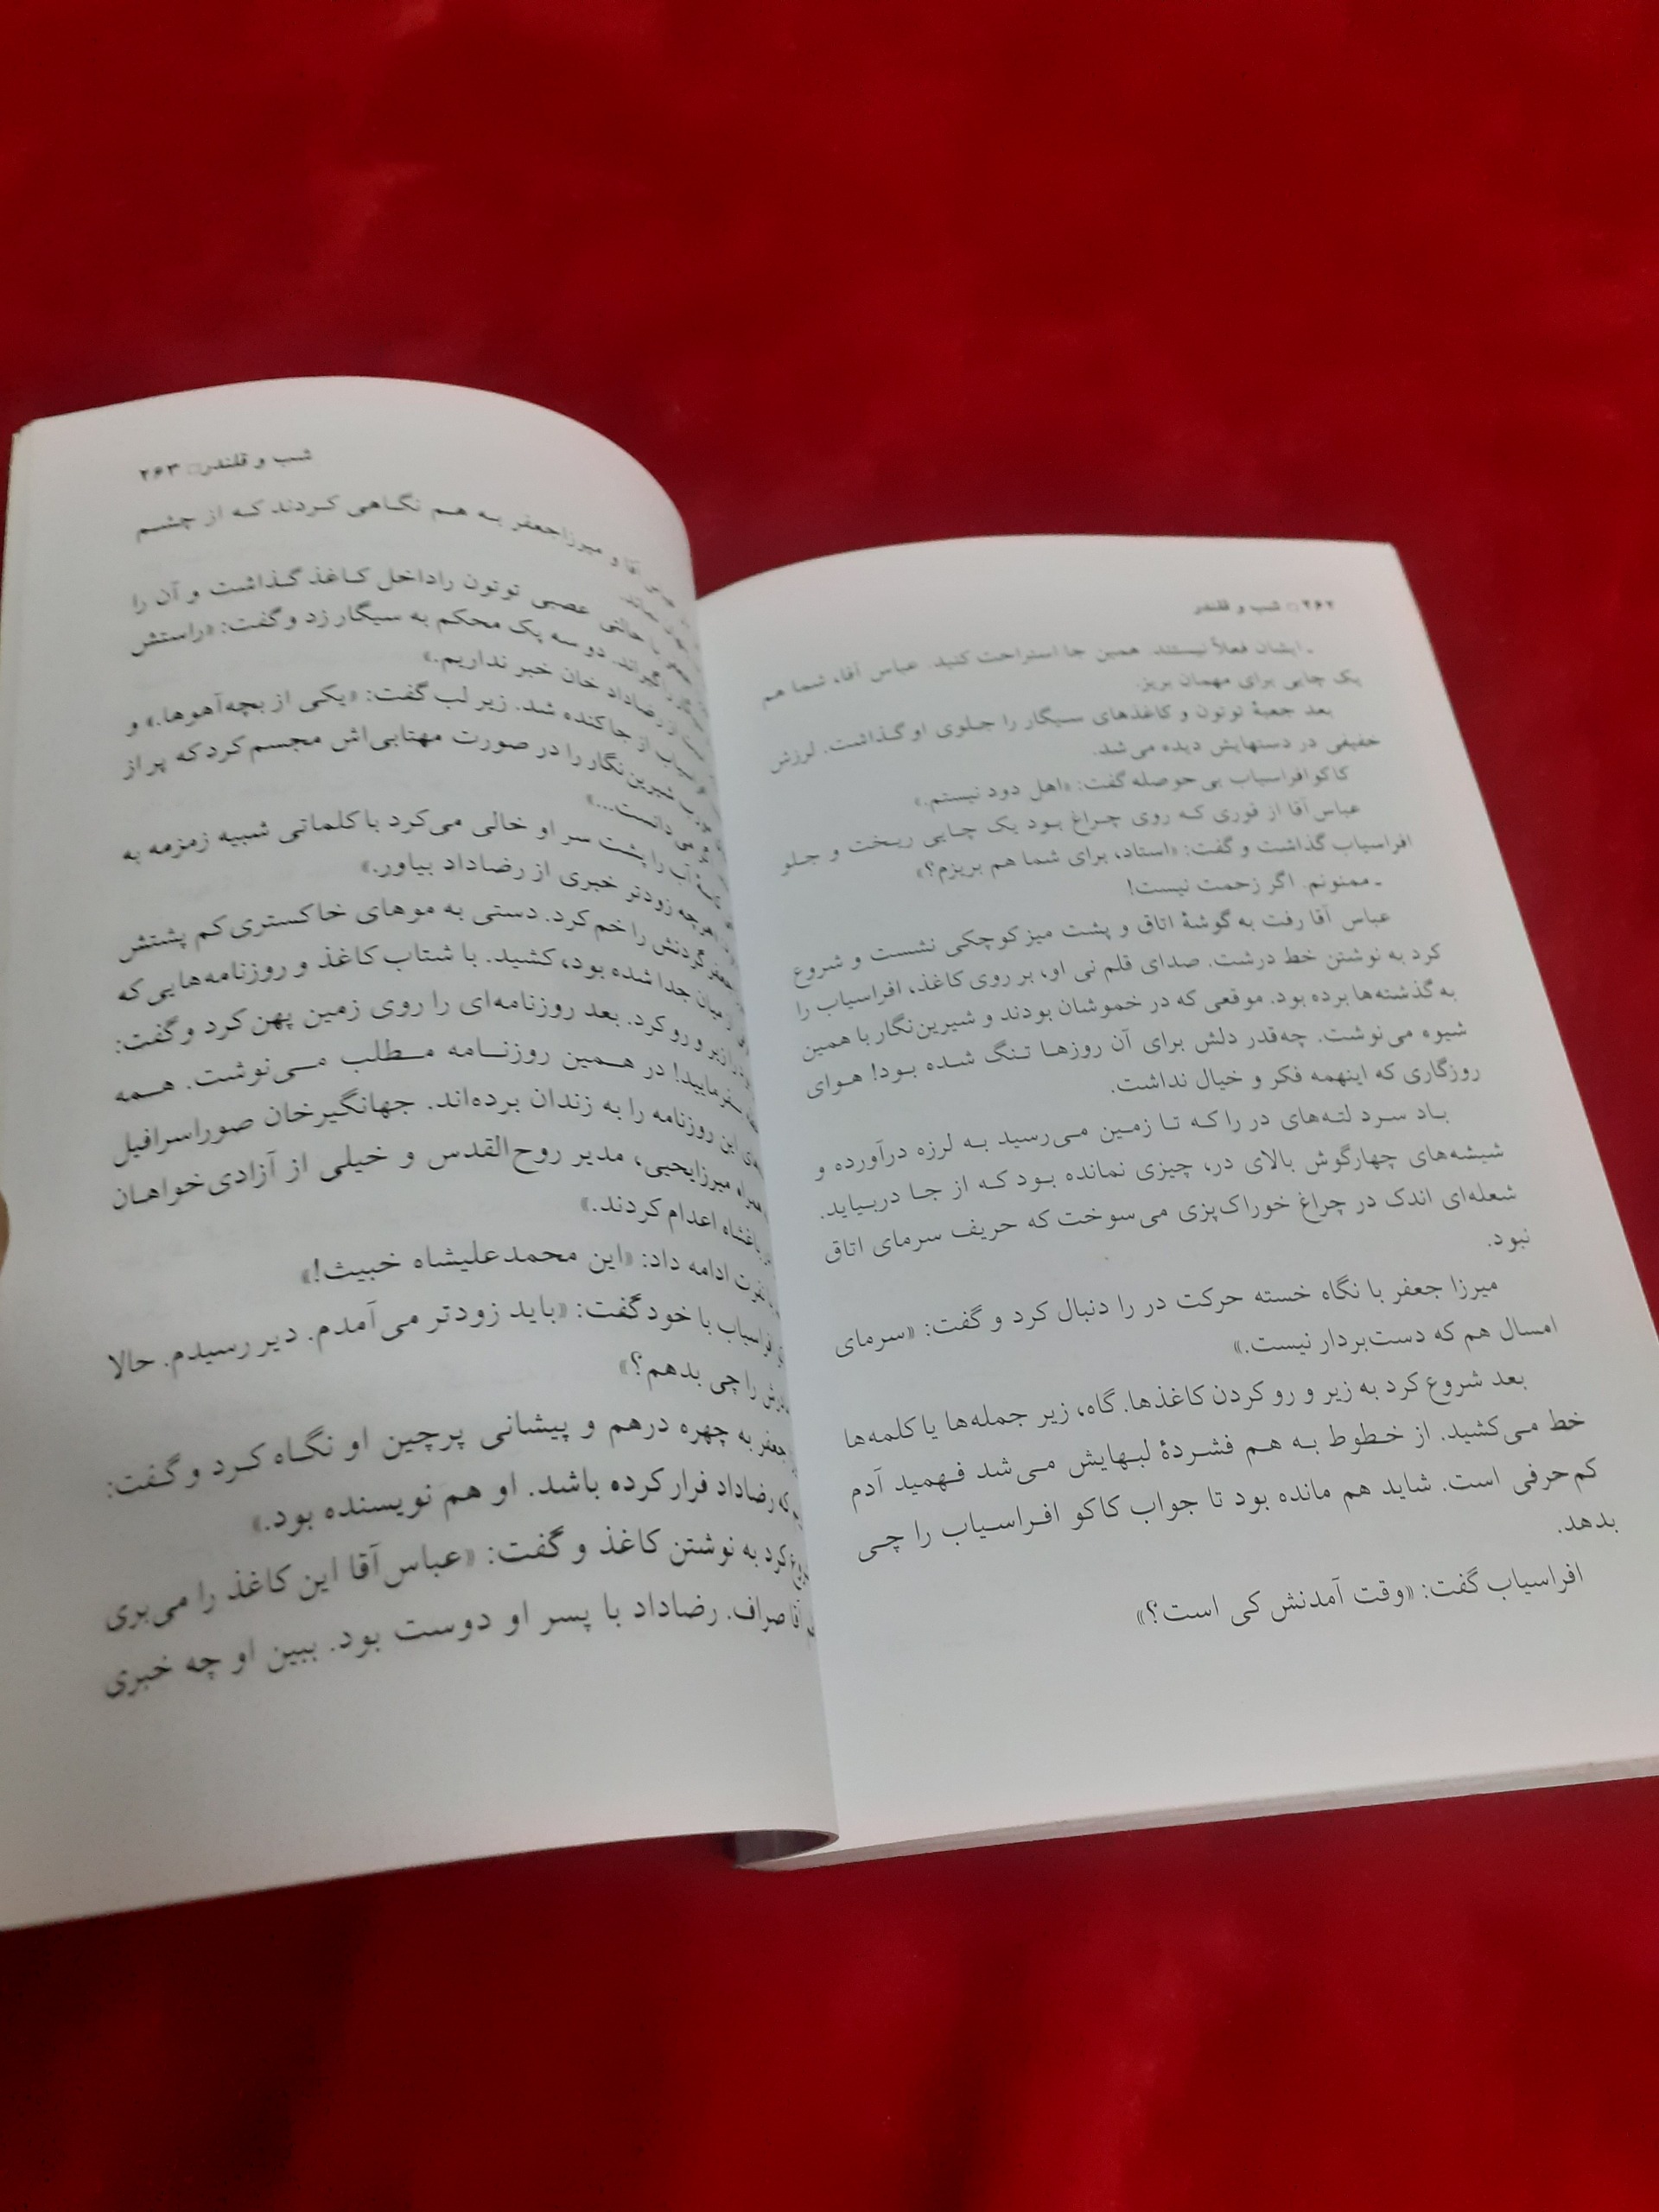 ۲۶۲ □ شب و قلندر
ـ ایشان فعلاً نیستند. همین جا استراحت کنید. عباس آقا، شما هم
یک چایی برای مهمان بریز.
بعد جعبهٔ توتون و کاغذهای سیگار را جلوی او گذاشت. لرزش
خفیفی در دستهایش دیده می‌شد.
کاکوافراسیاب بی حوصله گفت: «اهل دود نیستم.»
عباس‌آقا از قوری که روی چراغ بود یک چایی ریخت و جلو
افراسیاب گذاشت و گفت: «استاد، برای شما هم بریزم؟»
ـ ممنونم. اگر زحمت نیست!
عباس آقا رفت به گوشهٔ اتاق و پشت میز کوچکی نشست و شروع
کرد به نوشتن خط درشت. صدای قلم نی او، بر روی کاغذ، افراسیاب را
به گذشته‌ها برده بود. موقعی که در خموشان بودند و شیرین‌نگار با همین
شیوه می‌نوشت. چه‌قدر دلش برای آن روزها تنگ شده بود! هوای
روزگاری که اینهمه فکر و خیال نداشت.
باد سرد لته‌های در را که تا زمین می‌رسید به لرزه درآورده و
شیشه‌های چهارگوش بالای در، چیزی نمانده بود که از جا دربیاید.
شعله‌ای اندک در چراغ خوراک‌پزی می‌سوخت که حریف سرمای اتاق
نبود.
میرزا جعفر با نگاه خسته حرکت در را دنبال کرد و گفت: «سرمای
امسال هم که دست‌بردار نیست.»
بعد شروع کرد به زیر و رو کردن کاغذها. گاه، زیر جمله‌ها یا کلمه‌ها
خط می‌کشید. از خطوط به هم فشردهٔ لبهایش می‌شد فهمید آدم
کم‌حرفی است. شاید هم مانده بود تا جواب کاکو افراسیاب را چی
بدهد.
افراسیاب گفت: «وقت آمدنش کی است؟»
شب و قلندر □ ۲۶۳
آقا و میرزاجعفر به هم نگاهی کردند که از چشم
با حالتی عصبی توتون راداخل کاغذ گذاشت و آن را
گیراند. دو سه پک محکم به سیگار زد و گفت: «راستش
از رضاداد خان خبر نداریم.»
از جاکنده شد. زیر لب گفت: «یکی از بچه‌آهوها.» و
شیرین‌نگار را در صورت مهتابی‌اش مجسم کرد که پر از
می‌دانست...»
آب را پشت سر او خالی می‌کرد با کلماتی شبیه زمزمه به
هرچه زودتر خبری از رضاداد بیاور.»
گردنش را خم کرد. دستی به موهای خاکستری کم پشتش
میان جدا شده بود، کشید. با شتاب کاغذ و روزنامه‌هایی که
را زیر و رو کرد. بعد روزنامه‌ای را روی زمین پهن کرد و گفت:
بفرمایید! در همین روزنامه مطلب می‌نوشت. همه
این روزنامه را به زندان برده‌اند. جهانگیرخان صوراسرافیل
همراه میرزایحیی، مدیر روح‌القدس و خیلی از آزادی‌خواهان
باغشاه اعدام کردند.»
نفرت ادامه داد: «این محمدعلیشاه خبیث!»
افراسیاب با خود گفت: «باید زودتر می‌آمدم. دیر رسیدم. حالا
را چی بدهم؟»
جعفر به چهره درهم و پیشانی پرچین او نگاه کرد و گفت:
که رضاداد فرار کرده باشد. او هم نویسنده بود.»
کرد به نوشتن کاغذ و گفت: «عباس‌آقا این کاغذ را می‌بری
آقا صراف. رضاداد با پسر او دوست بود. ببین او چه خبری